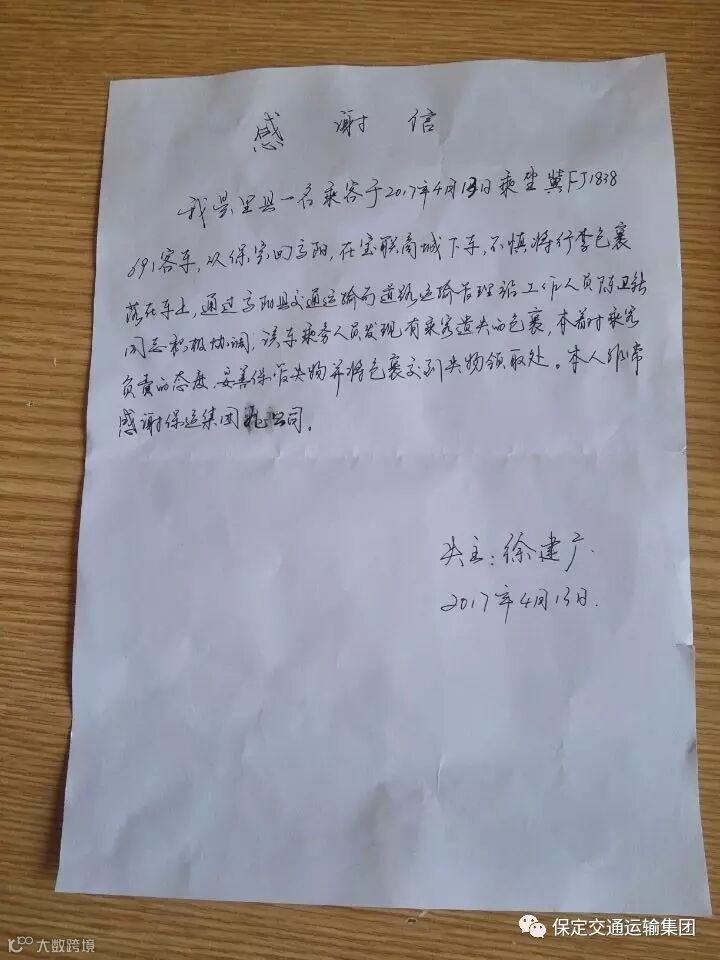 感谢信
我是蠡县一名乘客于2017年4月13日乘坐冀FJ1838
691客车,从保定回高阳,在宝联商城下车,不慎将行李包裹
落在车上,通过高阳县交通运输局道路运输管理站工作人员陈卫
同志积极协调,该车乘务人员发现有乘客遗失的包裹,本着对乘客
负责的态度,妥善保管失物并将包裹交到失物领取处。本人非常
感谢保运集团公司。
失主:徐建广.
2017年4月13日.
保定交通运输集团
大数跨境